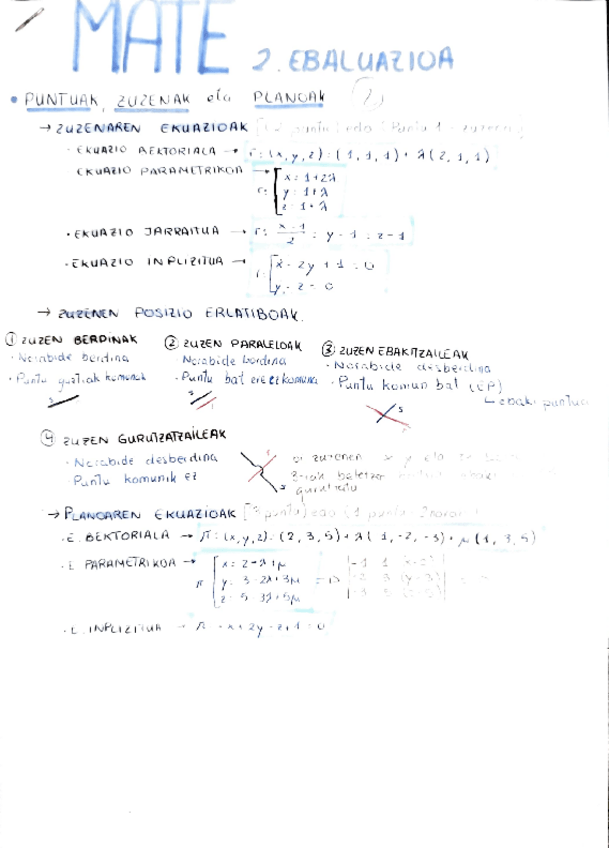 MATE 2. EBALUAZIOA
• PUNTUAK, ZUZENAK eta PLANOAK
→ ZUZENAREN EKUAZIOAK
· EKUAZIO BEKTORIALA → r: (x, y, z) = (1, 1, 1) + λ(2, 1, 1)
· EKUAZIO PARAMETRIKOA → r: x = 1+2λ
y = 1+λ
z = 1+λ
· EKUAZIO JARRAITUA → r: x-1/2 = y-1 = z-1
· EKUAZIO INPLIZITUA → r: x-2y+1=0
y-z=0
→ ZUZENEN POSIZIO ERLATIBOAK.
① ZUZEN BERDINAK
· Norabide berdina
· Puntu guztiak komunak
② ZUZEN PARALELOAK
· Norabide berdina
· Puntu bat ere ez komuna
③ ZUZEN EBAKITZAILEAK
· Norabide desberdina
· Puntu komun bat (EP)
ebaki puntua
④ ZUZEN GURUTZATZAILEAK
· Norabide desberdina
· Puntu komunik ez
→ PLANOAREN EKUAZIOAK
· E. BEKTORIALA → π: (x, y, z) = (2, 3, 5) + λ(1, -2, -3) + μ(1, 3, 5)
· E. PARAMETRIKOA → π x = 2+λ+μ
y = 3-2λ+3μ
z = 5-3λ+5μ
· E. INPLIZITUA → π